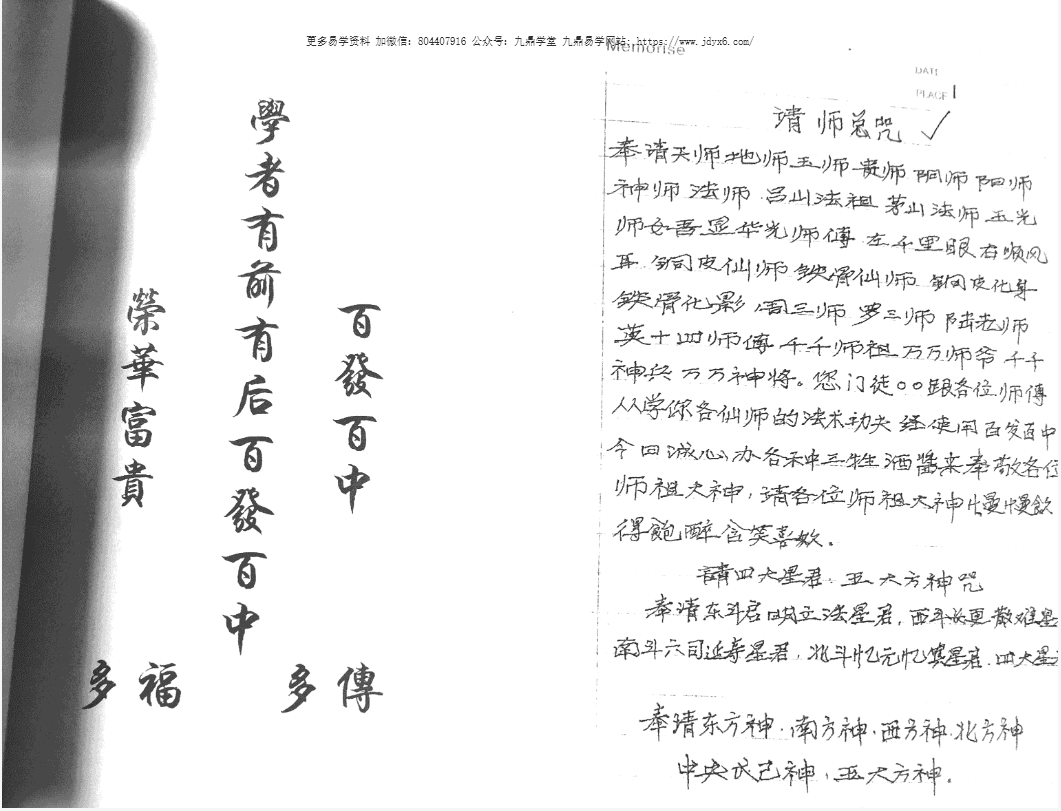 更多易学资料 加微信：804407916 公众号：九鼎学堂 九鼎易学网站：https://www.jdyx6.com/
Memorise
DATE
PLACE
榮華富貴
學者有前有后百發百中
百發百中
多福
多傳
请师总咒
奉请天师地师玉师贵师阴师阳师
神师法师 吕山法祖 茅山法师 五光
师 吾显华光师傅 左千里眼右顺风
耳 铜皮仙师 铁骨仙师 铜皮化身
铁骨化影 周三师 罗三师 陆老师
英十四师傅 千千师祖 万万师爷 千千
神兵 万万神将。您门徒〇〇跟各位师傅
学你各仙师的法术功夫 经使用百发百中
今日诚心办各禾中三牲酒醬来奉敬各位
师祖大神，请各位师祖大神慢慢飲
得飽醉含笑喜欢。
請四大星君 五大方神咒
奉请东斗君 立法星君，西斗长更散难星
南斗六司延寿星君，北斗 星君 四大星
奉请东方神·南方神·西方神·北方神
中央戊己神，五大方神。